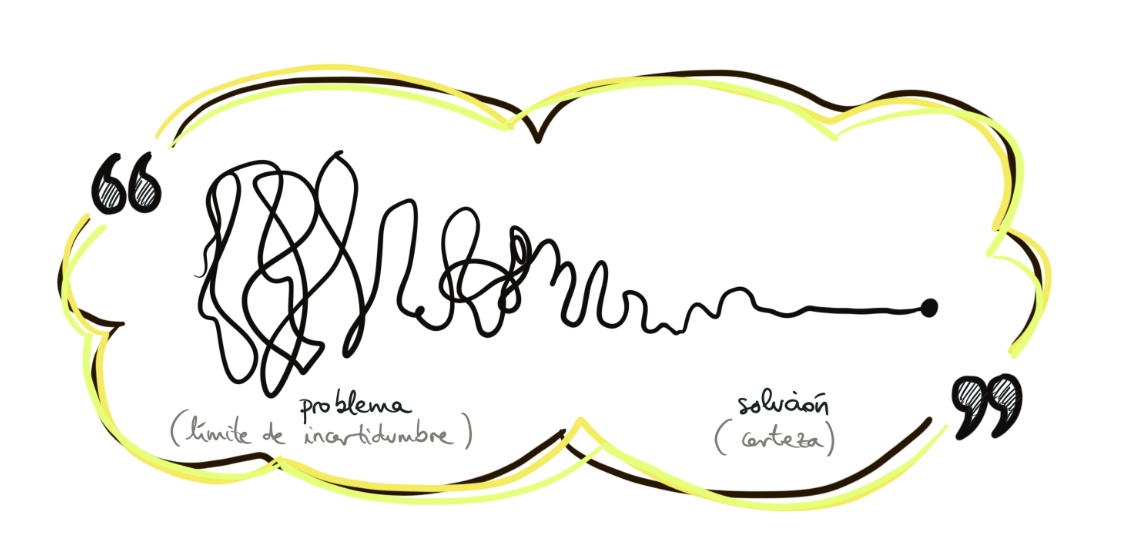 “
problema
(límite de incertidumbre)
solución
(certeza)
”